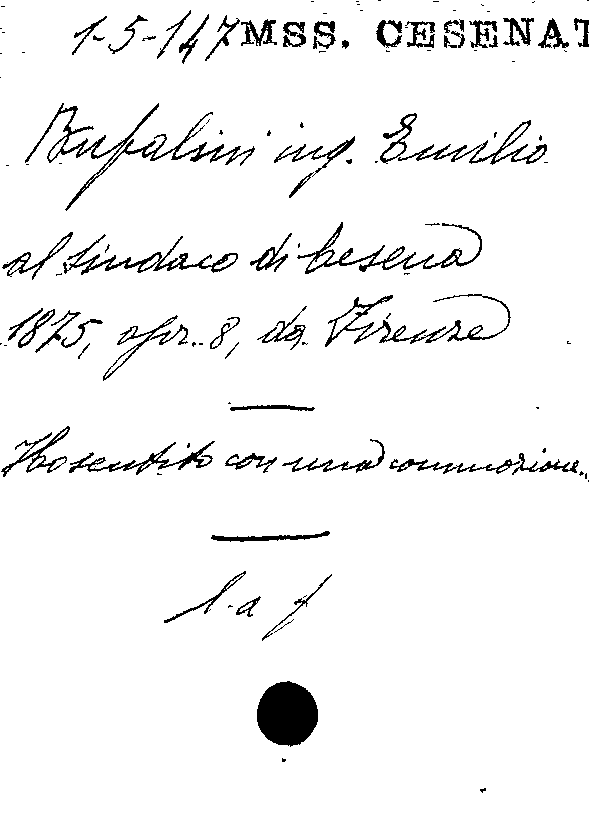 1-5-147 MSS. CESENAT
Bufalini ing. Emilio
al Sindaco di Cesena
1875, apr. 8, da Firenze
Ho sentito con una commozione..
l. a f